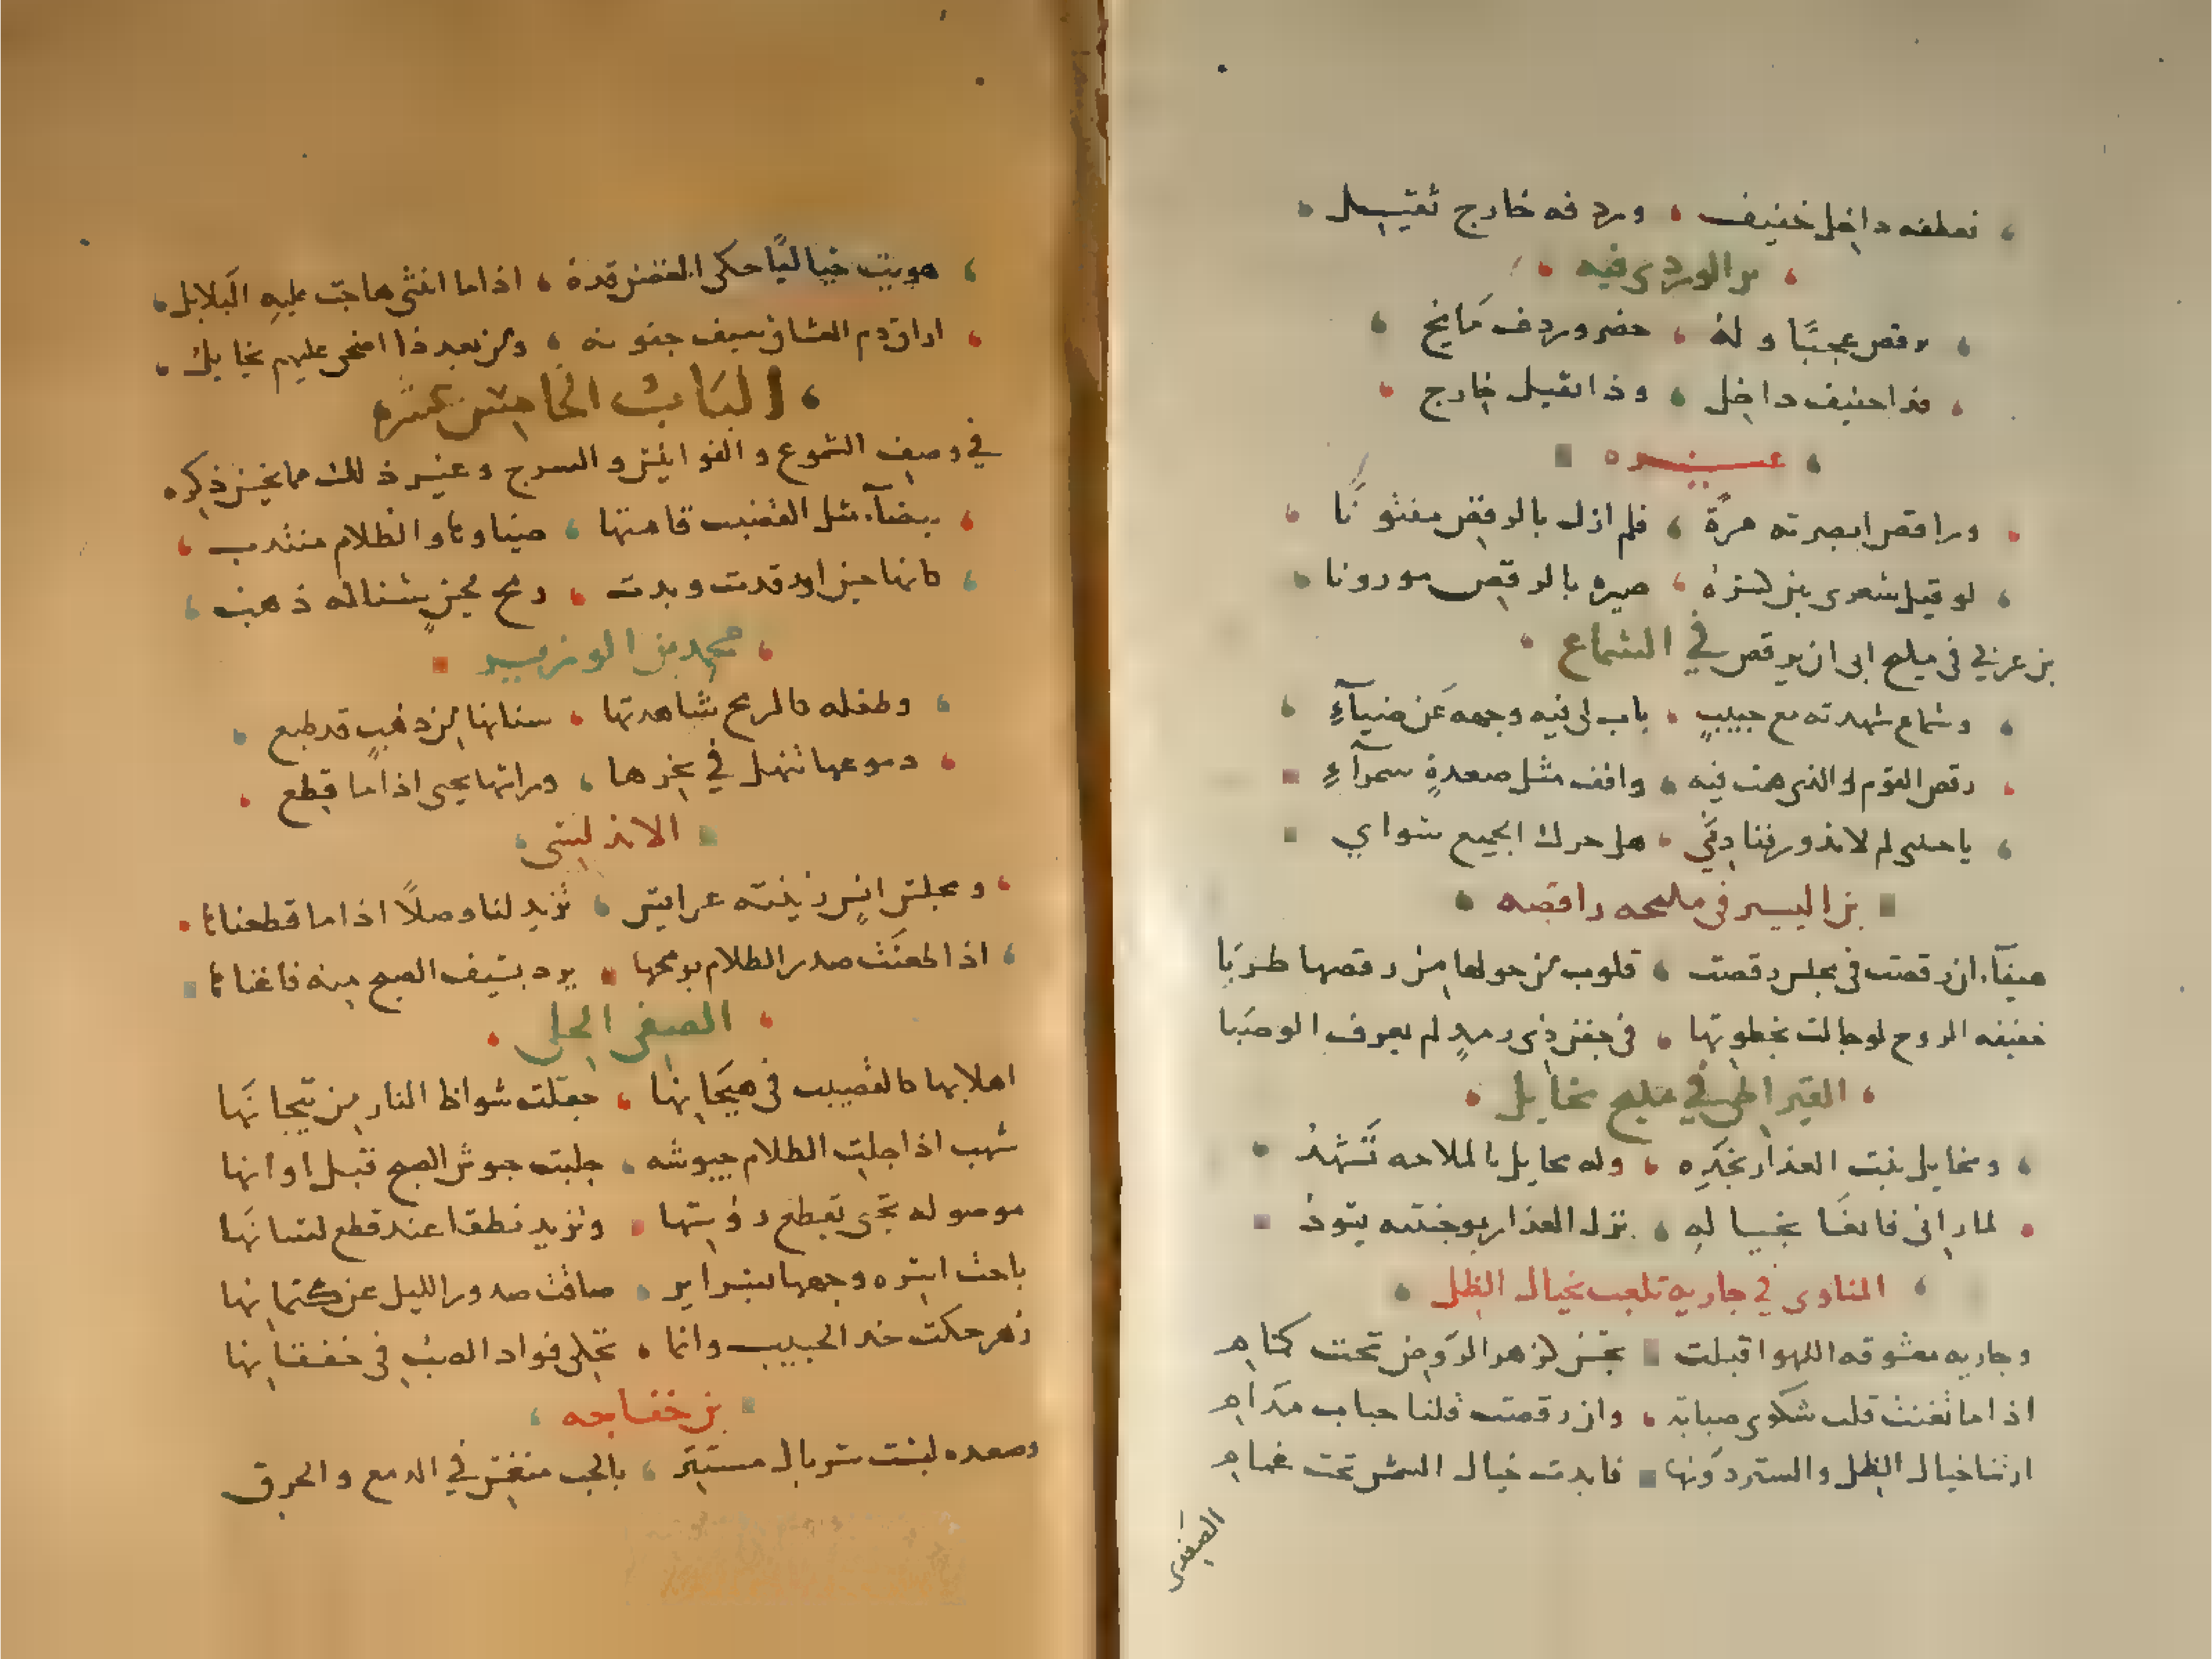 فعطفه داخل خفيف وردفه خارج ثقيل
بن الوردي فيه
يرقص عجبا وله خصر وردف مايج
فذا خفيف داخل وذا ثقيل خارج
غيره
وراقص ابصرته مرة فلم ازل بالرقص مفتونا
لو قيل شعري بن صيره بالرقص موزونا
بن عربي في مليح ابى ان يرقص في السماع
وسماع شهدته مع حبيب بان لي فيه وجهه عن ضياء
رقص القوم والذي همت فيه واقف مثل صعدة سمراء
هل حرك الجميع سواي
بن اليسير في مليحه راقصه
هيفاء ان رقصت في مجلس رقصت قلوب من حولها من رقصها طربا
خفيفه الروح لو جالت بخطوتها في جفن ذي رمد لم يعرف الوصبا
القيراطي في مليح مخايل
ومخايل نبت العذار بخده وله مخايل بالملاحه تشهد
لما راني قانعا بخياله نزل العذار بوجنتيه
المناوي في جاريه تلعب بخيال الظل
وجاريه معشوقه اللهو اقبلت بحسن كزهر الروض تحت كمام
اذا ما تغنت قلت شكوى صبابة وان رقصت قلنا حباب مدام
ارتنا خيال الظل والستر دونها فابدت خيال الشمس تحت غمام
الصفدي
هويت خياليا حكى الغصن قده اذا ما انثنى هاجت عليه البلابل
اراق دم العشاق سيف جفونه ومن بعد ذا اضحى عليهم يخايل
الباب الخامس عشره
في وصف الشموع والفوانيس والسرج وغير ذلك مما يحسن ذكره
بيضاء مثل القضيب قامتها ضياوها والظلام منتدب
كانها حين اوقدت وبدت رمح لجين سنانه ذهب
محمد بن الوزير
وطفله كالرمح شاهدتها سنانها من ذهب قد طبع
دموعها تنهل في نحرها وراسها يحيى اذا ما قطع
الاندلسي
ومجلس انس زينته عرايس تزيد لنا وصلا اذا ما قطعناها
اذا طعنت صدر الظلام برمحها يرد بسيف الصبح منه فافناها
الصفي الحلي
اهلا بها كالقضيب في هيجانها جعلت شواظ النار من تيجانها
شهب اذا جلت الظلام جيوشه جلبت جيوش الصبح قبل اوانها
موصوله تحيى بقطع رؤسها وتزيد نطقا عند قطع لسانها
باحت اسره وجهها بسراير ضاقت صدور الليل عن كتمانها
زهر حكت خد الحبيب وانما تحكي فواد الصب في خفقانها
بن خفاجه
وصعده لبست سربال مستتر بالحب منغمس في الدمع والحرق